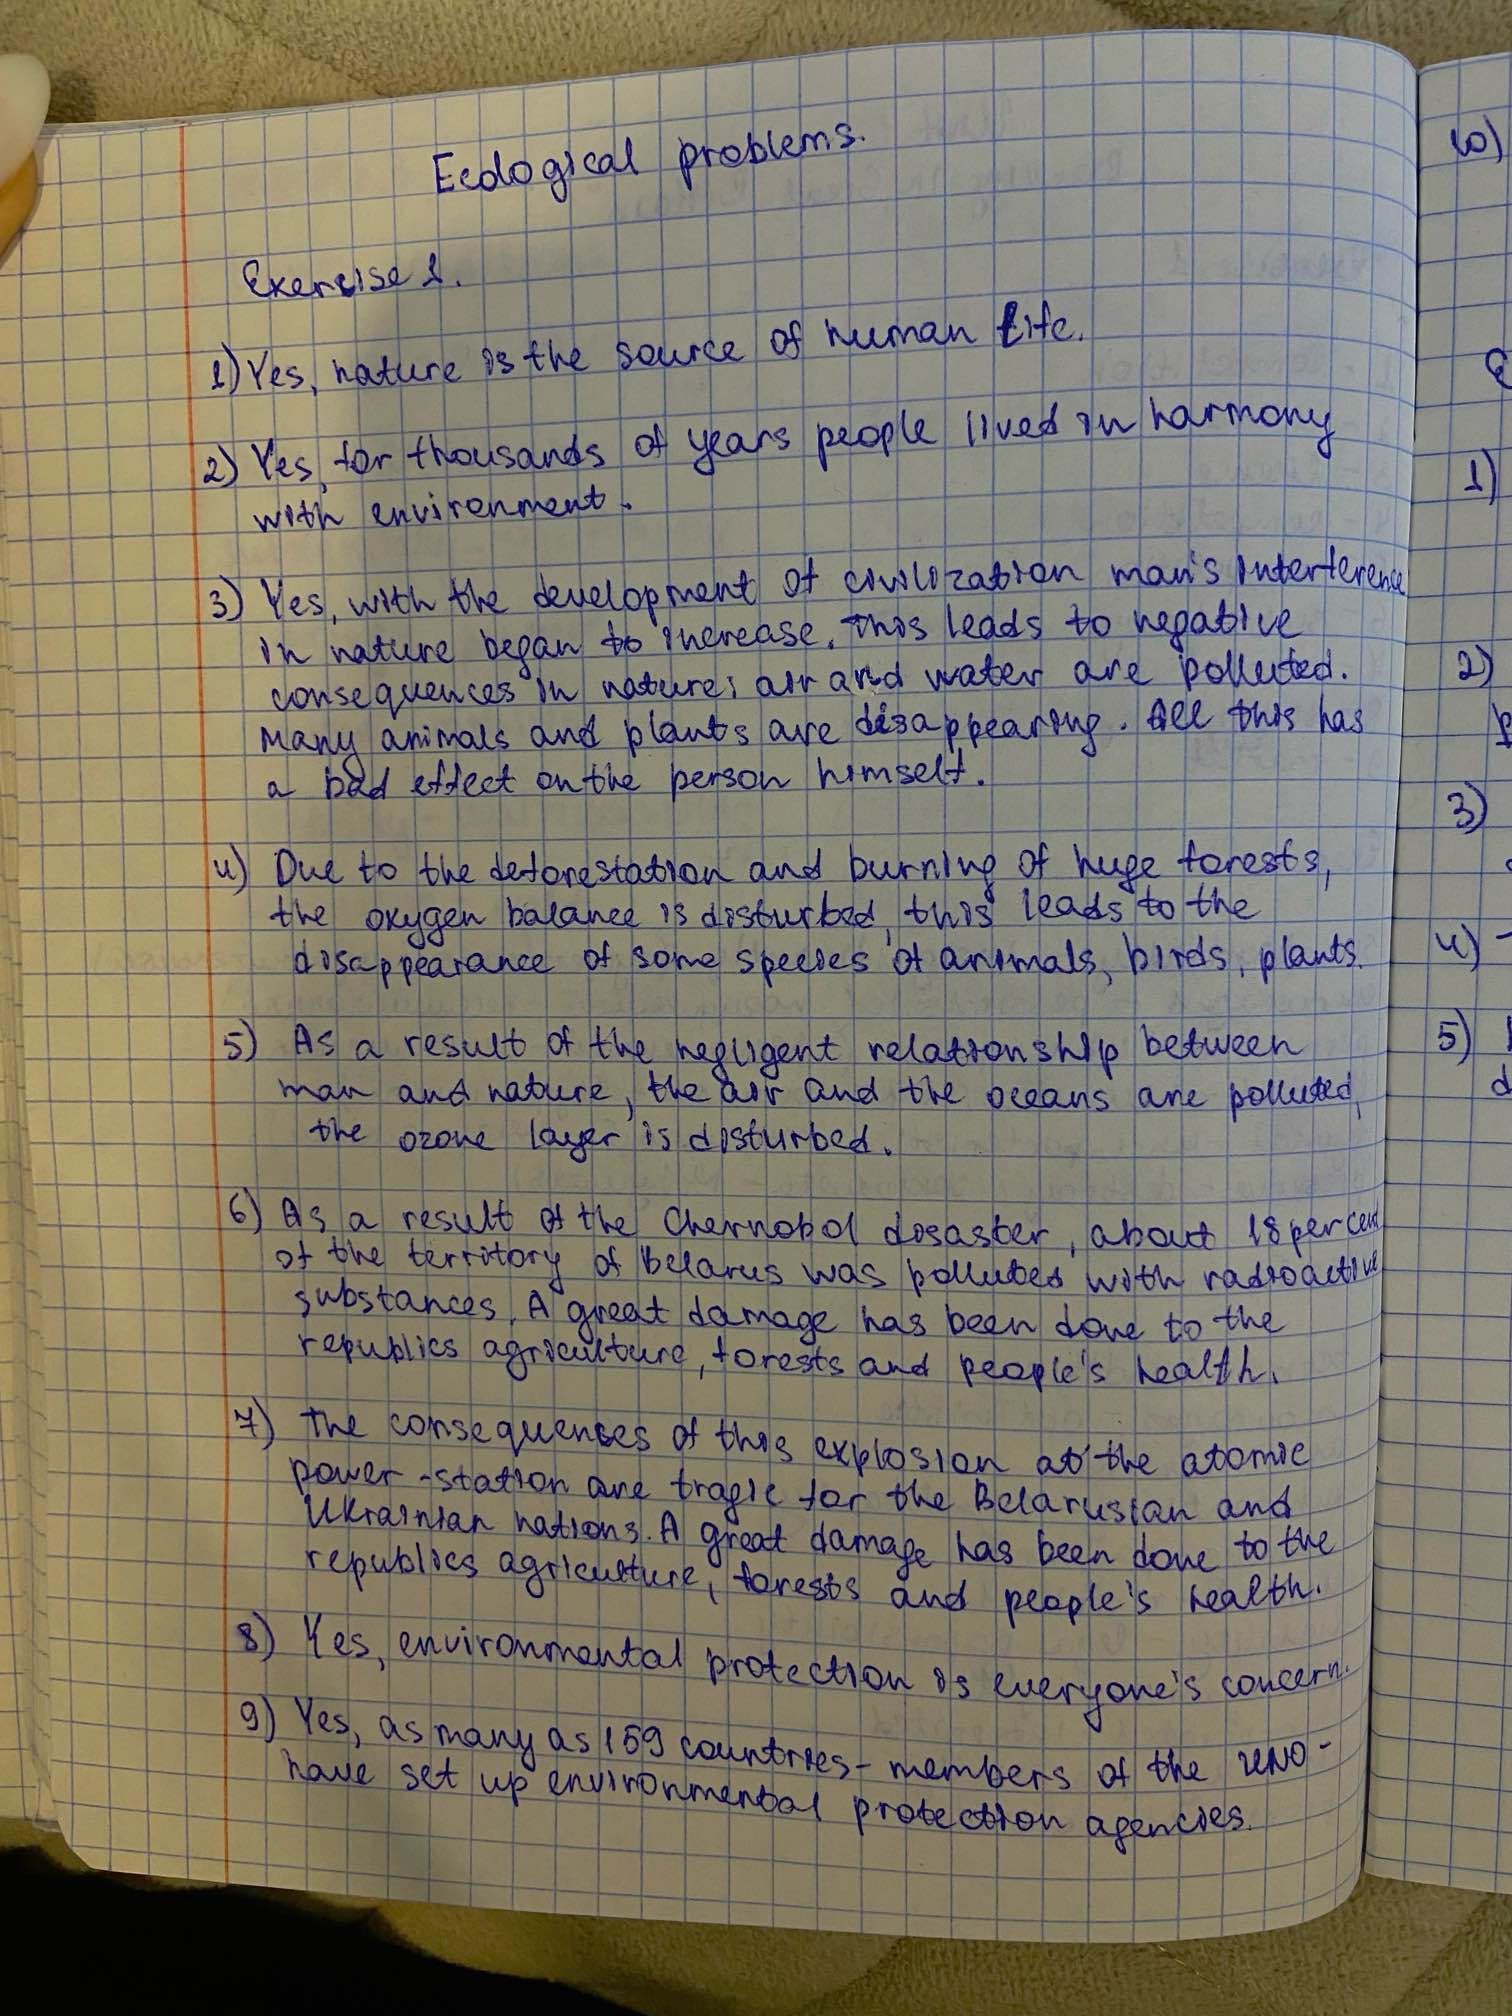 Ecological problems.
Exercise 1.
1) Yes, nature is the source of human life.
2) Yes, for thousands of years people lived in harmony
with environment.
3) Yes, with the development of civilization man's interference
in nature began to increase. This leads to negative
consequences in nature: air and water are polluted.
Many animals and plants are disappearing. All this has
a bad effect on the person himself.
4) Due to the deforestation and burning of huge forests,
the oxygen balance is disturbed, this leads to the
disappearance of some species of animals, birds, plants.
5) As a result of the negligent relationship between
man and nature, the air and the oceans are polluted,
the ozone layer is disturbed.
6) As a result of the Chernobol disaster, about 18 percent
of the territory of Belarus was polluted with radioactive
substances. A great damage has been done to the
republics agriculture, forests and people's health.
7) The consequences of this explosion at the atomic
power-station are tragic for the Belarusian and
Ukrainian nations. A great damage has been done to the
republics agriculture, forests and people's health.
8) Yes, environmental protection is everyone's concern.
9) Yes, as many as 159 countries - members of the UNO -
have set up environmental protection agencies.
10)
1)
2)
3)
4)
5)